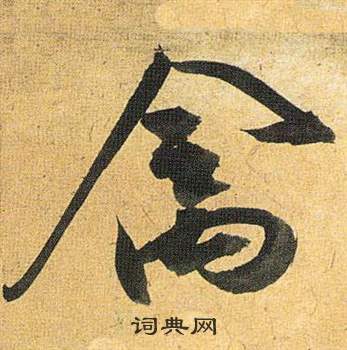 禽
词典网